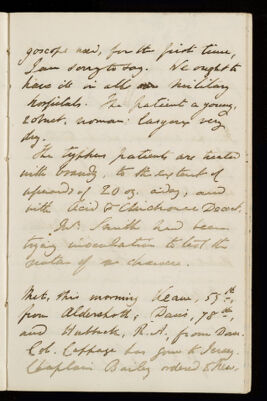 goscope used, for the first time,
I am sorry to say. We ought to
have it in all our Military
hospitals. The patient a young,
robust, woman: larynx very
dry.
The typhus patients are treated
with brandy, to the extent of
upwards of 20 oz. a day, and
with Acid & Cinchonae Decoct.
Smith had been
trying inoculation to test the
nature of a chancre.
Met, this morning Keane, 55th,
from Aldershott, Davis, 78th,
and Hubback, R. A., from Dover.
Col. Cubbage has gone to Jersey.
Chaplain Bailey ordered to New